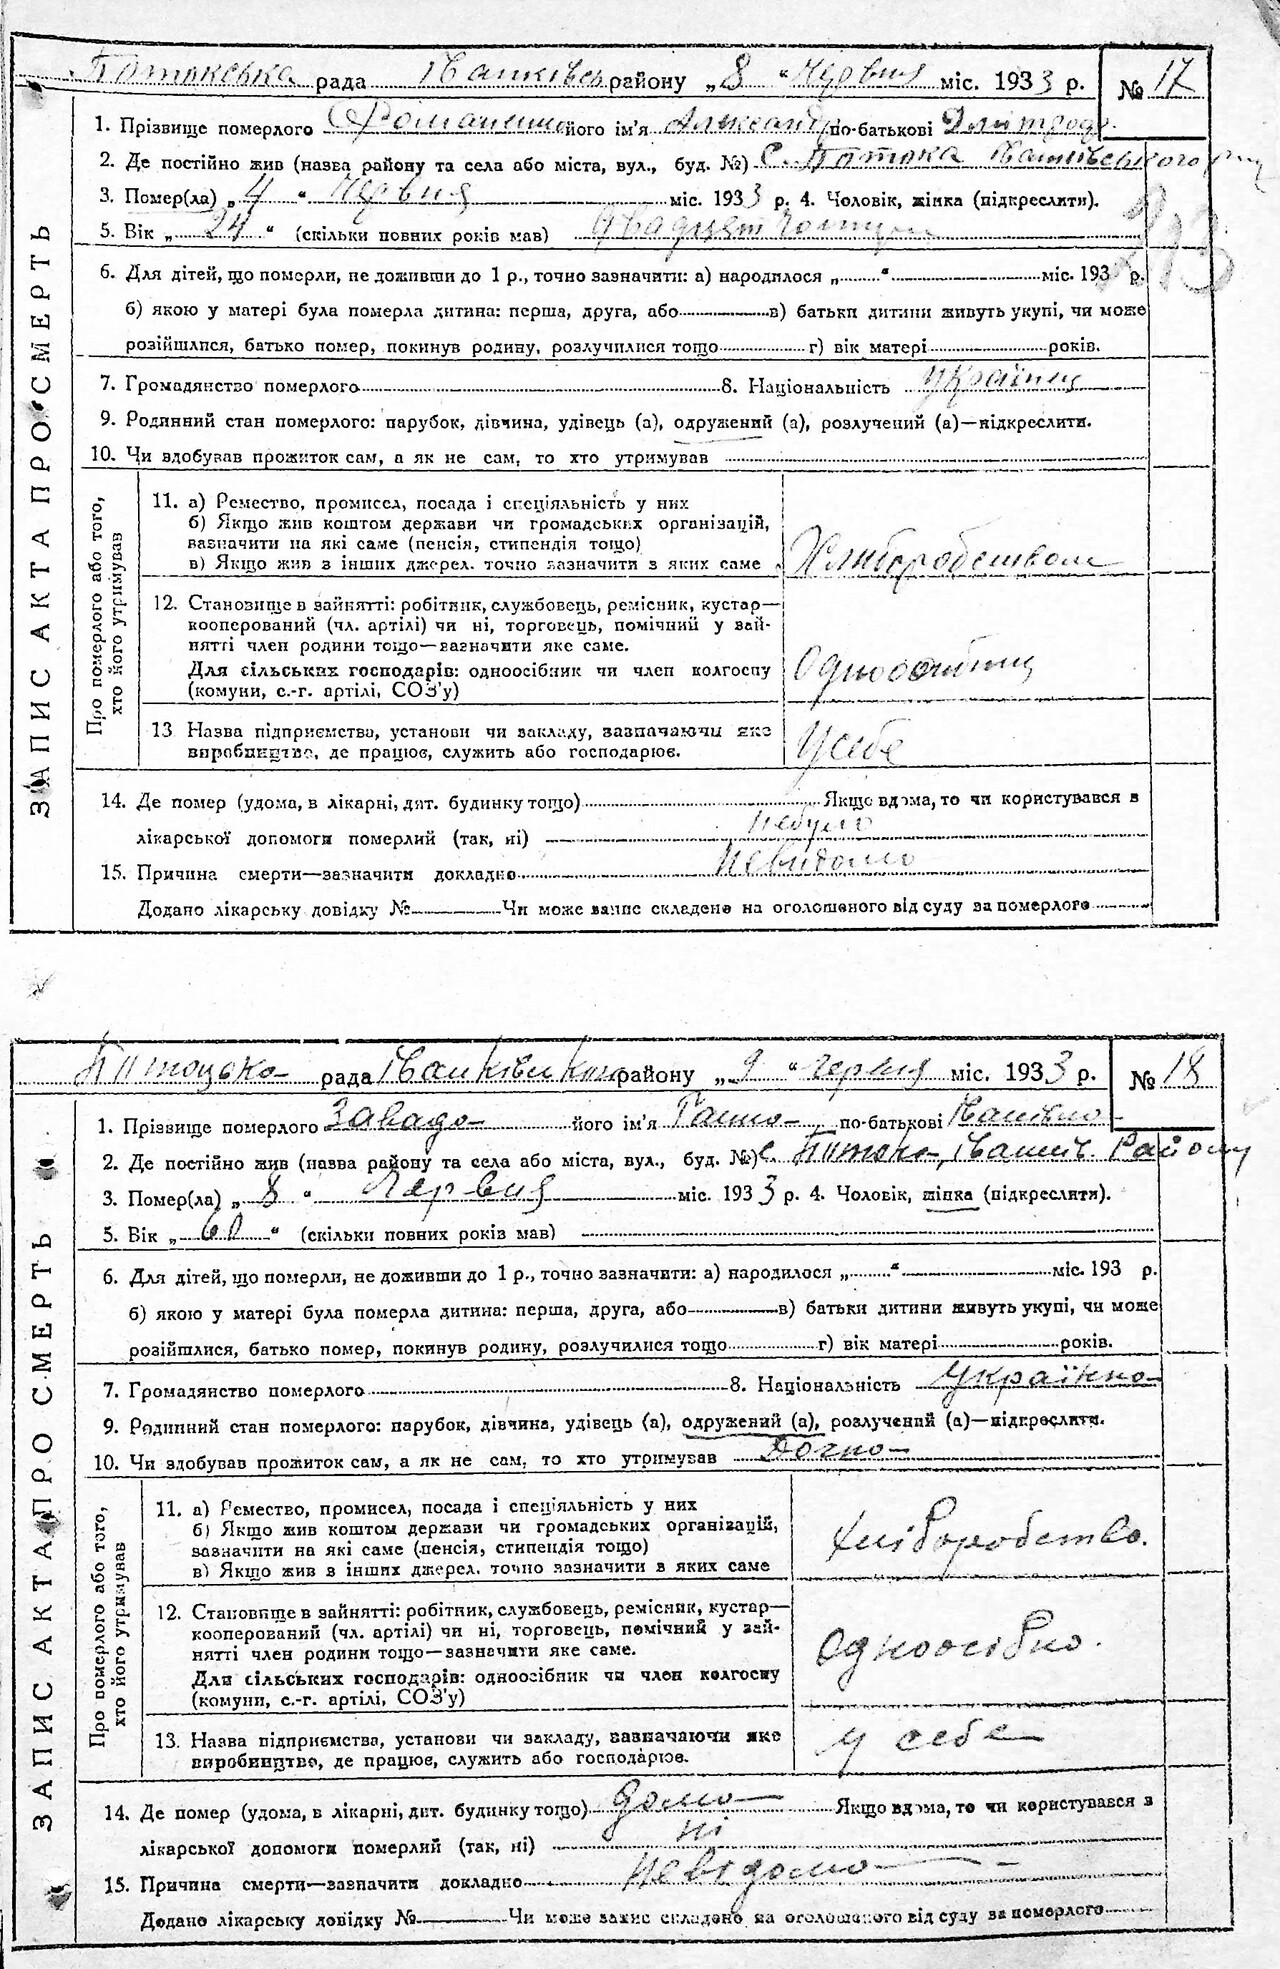 ЗАПИС АКТА ПРО СМЕРТЬ
рада району „8“ Червня міс. 1933 р. № 17
1. Прізвище померлого його ім'я Александр по-батькові
2. Де постійно жив (назва району та села або міста, вул., буд. №) с. Потока
3. Помер(ла) „4“ Червня міс. 1933 р. 4. Чоловік, жінка (підкреслити).
5. Вік „24“ (скільки повних років мав)
213
6. Для дітей, що померли, не доживши до 1 р., точно зазначити: а) народилося „ “ міс. 193 р.
б) якою у матері була померла дитина: перша, друга, або в) батьки дитини живуть укупі, чи може
розійшлися, батько помер, покинув родину, розлучилися тощо г) вік матері років.
7. Громадянство померлого 8. Національність Українец
9. Родинний стан померлого: парубок, дівчина, удівець (а), одружений (а), розлучений (а)—підкреслити.
10. Чи здобував прожиток сам, а як не сам, то хто утримував
Про померлого або того, хто його утримував
11. а) Ремество, промисел, посада і спеціяльність у них
б) Якщо жив коштом держави чи громадських організацій,
зазначити на які саме (пенсія, стипендія тощо)
в) Якщо жив з інших джерел, точно зазначити з яких саме
Хлиборобством
12. Становище в зайнятті: робітник, службовець, ремісник, кустар—
кооперований (чл. артілі) чи ні, торговець, помічний у зай-
нятті член родини тощо—зазначити яке саме.
Для сільських господарів: одноосібник чи член колгоспу
(комуни, с.-г. артілі, СОЗ'у)
13 Назва підприємства, установи чи закладу, зазначаючи яке
виробництво, де працює, служить або господарює.
У себе
14. Де помер (удома, в лікарні, дит. будинку тощо) Якщо вдома, то чи користувався з
лікарської допомоги померлий (так, ні) небуло
15. Причина смерти—зазначити докладно невидомо
Додано лікарську довідку № Чи може запис складено на оголошеного від суду за померлого
ЗАПИС АКТА ПРО СМЕРТЬ
рада району „9“ червня міс. 1933 р. № 18
1. Прізвище померлого Завада його ім'я Ганна по-батькові
2. Де постійно жив (назва району та села або міста, вул., буд. №) с. Потока, Іванків. Району
3. Помер(ла) „8“ Червня міс. 1933 р. 4. Чоловік, жінка (підкреслити).
5. Вік „60“ (скільки повних років мав)
6. Для дітей, що померли, не доживши до 1 р., точно зазначити: а) народилося „ “ міс. 193 р.
б) якою у матері була померла дитина: перша, друга, або в) батьки дитини живуть укупі, чи може
розійшлися, батько помер, покинув родину, розлучилися тощо г) вік матері років.
7. Громадянство померлого 8. Національність Українка
9. Родинний стан померлого: парубок, дівчина, удівець (а), одружений (а), розлучений (а)—підкреслити.
10. Чи здобував прожиток сам, а як не сам, то хто утримував Дочка
Про померлого або того, хто його утримував
11. а) Ремество, промисел, посада і спеціяльність у них
б) Якщо жив коштом держави чи громадських організацій,
зазначити на які саме (пенсія, стипендія тощо)
в) Якщо жив з інших джерел, точно зазначити в яких саме
Хліборобство.
12. Становище в зайнятті: робітник, службовець, ремісник, кустар—
кооперований (чл. артілі) чи ні, торговець, помічний у зай-
нятті член родини тощо—зазначити яке саме.
Для сільських господарів: одноосібник чи член колгоспу
(комуни, с.-г. артілі, СОЗ'у)
Одноосібно.
13. Назва підприємства, установи чи закладу, зазначаючи яке
виробництво, де працює, служить або господарює.
у себе
14. Де помер (удома, в лікарні, дит. будинку тощо) дома Якщо вдома, то чи користувався з
лікарської допомоги померлий (так, ні) ні
15. Причина смерти—зазначити докладно невідомо
Додано лікарську довідку № Чи може запис складено на оголошеного від суду за померлого